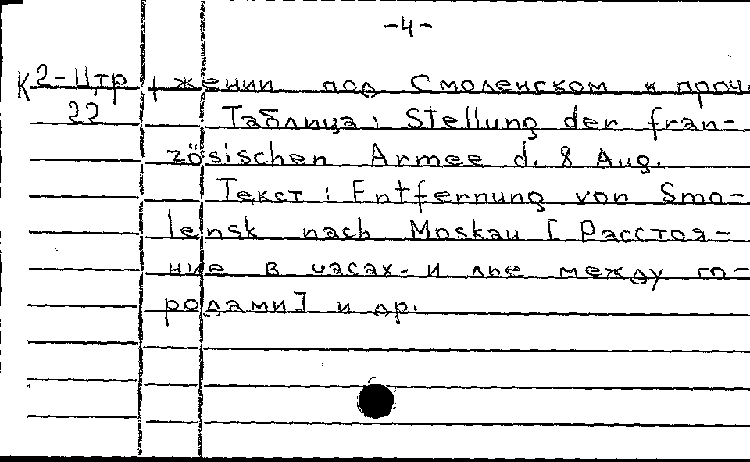 -4-
К 2-Цтр жении под Смоленском и проч.
22 Таблица: Stellung der fran-
zösischen Armee d. 8 Aug.
Текст: Entfernung von Smo-
lensk nach Moskau [Расстоя-
ние в часах и между го-
родами] и др.